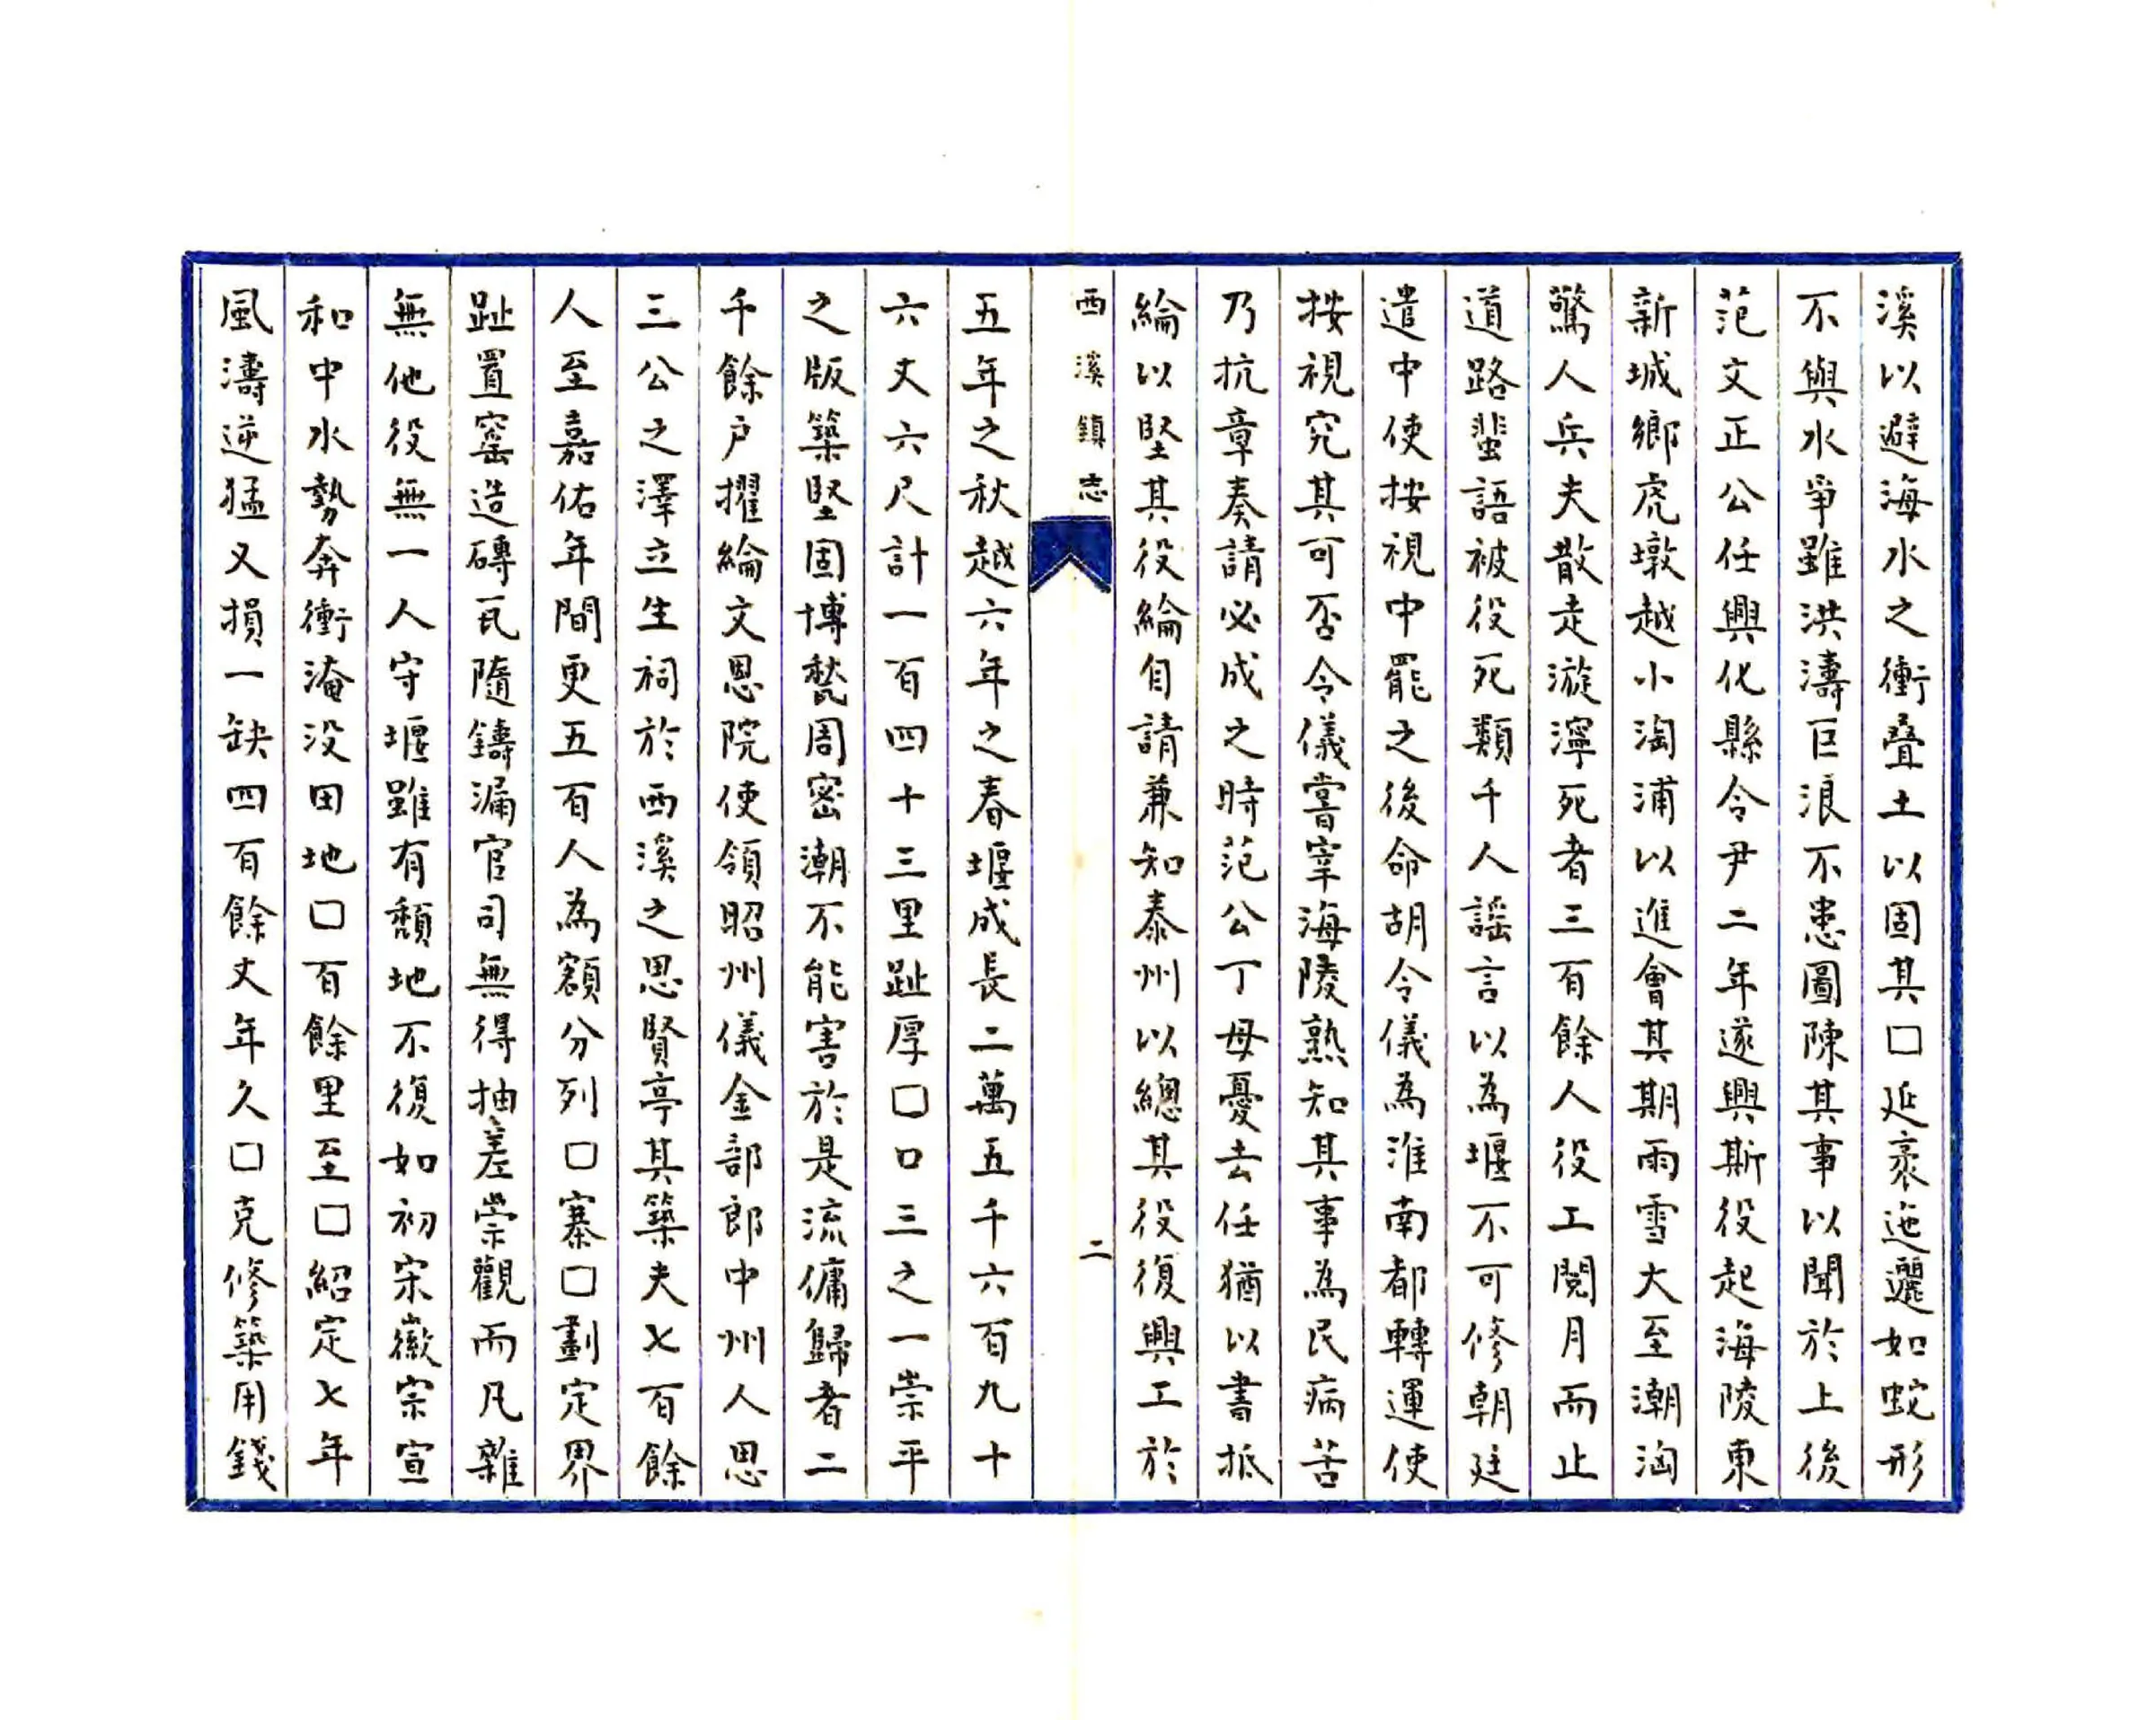 溪以避海水之衝疊土以固其□延袤迤邐如蛇形
不與水爭雖洪濤巨浪不患圖陳其事以聞於上後
范文正公任興化縣令尹二年遂興斯役起海陵東
新城鄉虎墩越小淘浦以進會其期雨雪大至潮洶
驚人兵夫散走漩濘死者三百餘人役工閱月而止
道路蜚語被役死類千人謡言以為堰不可修朝廷
遣中使按視中罷之後命胡令儀為淮南都轉運使
按視究其可否令儀嘗宰海陵熟知其事為民病苦
乃抗章奏請必成之時范公丁母憂去任猶以書抵
綸以堅其役綸自請兼知泰州以總其役復興工於
西溪鎮志
二
五年之秋越六年之春堰成長二萬五千六百九十
六丈六尺計一百四十三里趾厚□口三之一崇平
之版築堅固博甃周密潮不能害於是流傭歸者二
千餘户擢綸文思院使領昭州儀金部郎中州人思
三公之澤立生祠於西溪之思賢亭其築夫七百餘
人至嘉佑年間更五百人為額分列□寨□劃定界
趾置窰造磚瓦隨鑄漏官司無得抽差崇觀而凡雜
無他役無一人守堰雖有頹地不復如初宋徽宗宣
和中水勢奔衝淹没田地□百餘里至□紹定七年
風濤逆猛又損一缺四百餘丈年久□克修築用錢